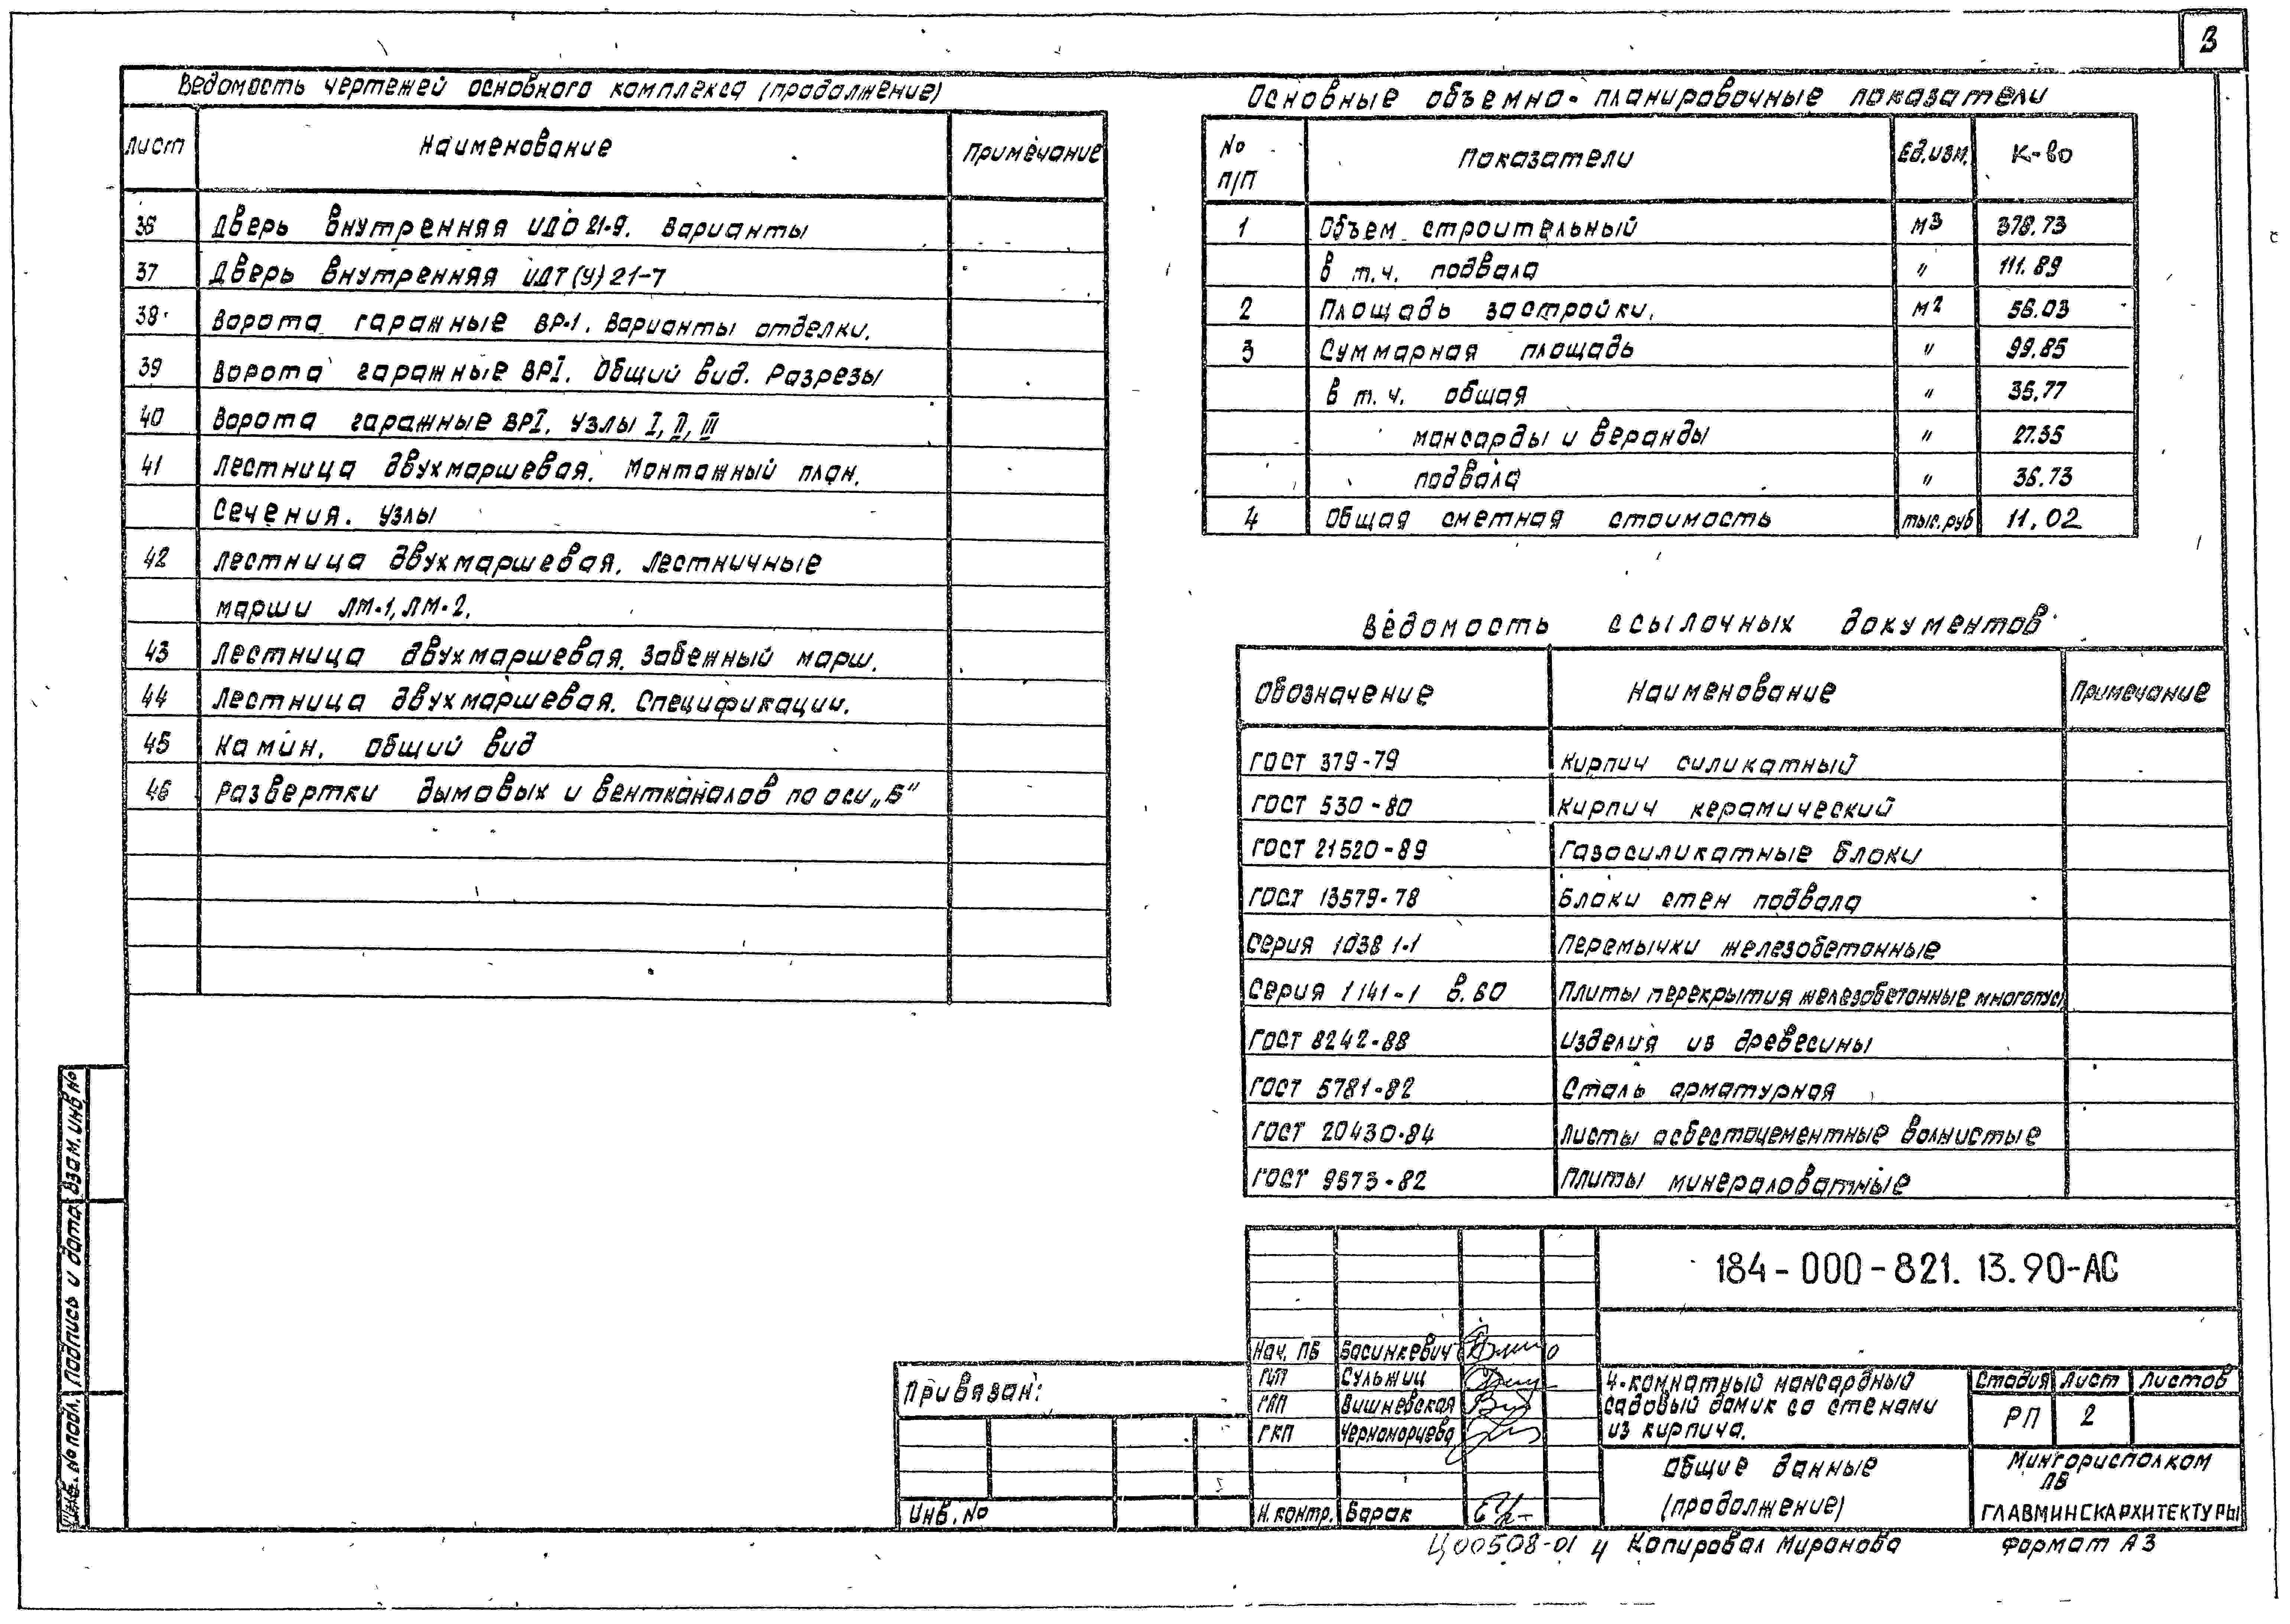 3
Ведомость чертежей основного комплекса (продолжение)
лист Наименование Примечание
36 Дверь внутренняя ИДО 21-9. Варианты
37 Дверь внутренняя ИДТ(У) 21-7
38 Ворота гаражные ВР-1. Варианты отделки.
39 Ворота гаражные ВРI. Общий вид. Разрезы
40 Ворота гаражные ВРI. Узлы I, II, III
41 Лестница двухмаршевая. Монтажный план.
Сечения. Узлы
42 Лестница двухмаршевая. Лестничные
марши ЛМ-1, ЛМ-2.
43 Лестница двухмаршевая. Забежный марш.
44 Лестница двухмаршевая. Спецификации.
45 Камин. Общий вид
46 Развертки дымовых и вентканалов по оси „Б"
Основные объемно-планировочные показатели
№ п/п Показатели Ед.изм. К-во
1 Объем строительный м3 378.73
в т.ч. подвала " 111.89
2 Площадь застройки. м2 56.03
3 Суммарная площадь " 99.85
в т.ч. общая " 35.77
мансарды и веранды " 27.35
подвала " 36.73
4 Общая сметная стоимость тыс.руб 11.02
Ведомость ссылочных документов
Обозначение Наименование Примечание
ГОСТ 379-79 Кирпич силикатный
ГОСТ 530-80 Кирпич керамический
ГОСТ 21520-89 Газосиликатные блоки
ГОСТ 13579-78 Блоки стен подвала
Серия 1038 1-1 Перемычки железобетонные
Серия 1141-1 в.60 Плиты перекрытия железобетонные многопус
ГОСТ 8242-88 Изделия из древесины
ГОСТ 5781-82 Сталь арматурная
ГОСТ 20430-84 Листы асбестоцементные волнистые
ГОСТ 9573-82 Плиты минераловатные
184-000-821.13.90-АС
Нач. ПБ Васинкевич
ГИП Сульжиц
ГАП Вишневская
ГКП Черноморцева
Н.контр. Барак
4-комнатный мансардный
садовый домик со стенами
из кирпича.
Стадия Лист Листов
РП 2
Общие данные
(продолжение)
Мингорисполком
ПБ
ГЛАВМИНСКАРХИТЕКТУРЫ
Привязан:
Инв. №
Взам. инв №
Подпись и дата
Инв. № подл.
Ц00508-01 4 Копировал Миранова Формат А3